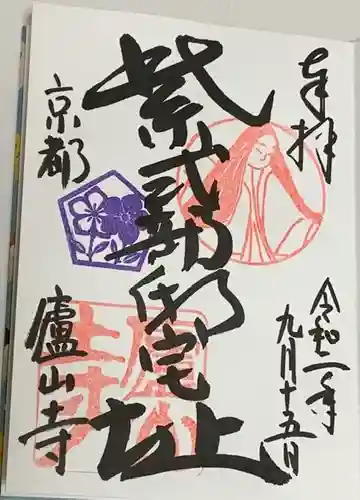 奉拝
令和一年
九月十五日
紫式部邸宅址
京都
廬山寺